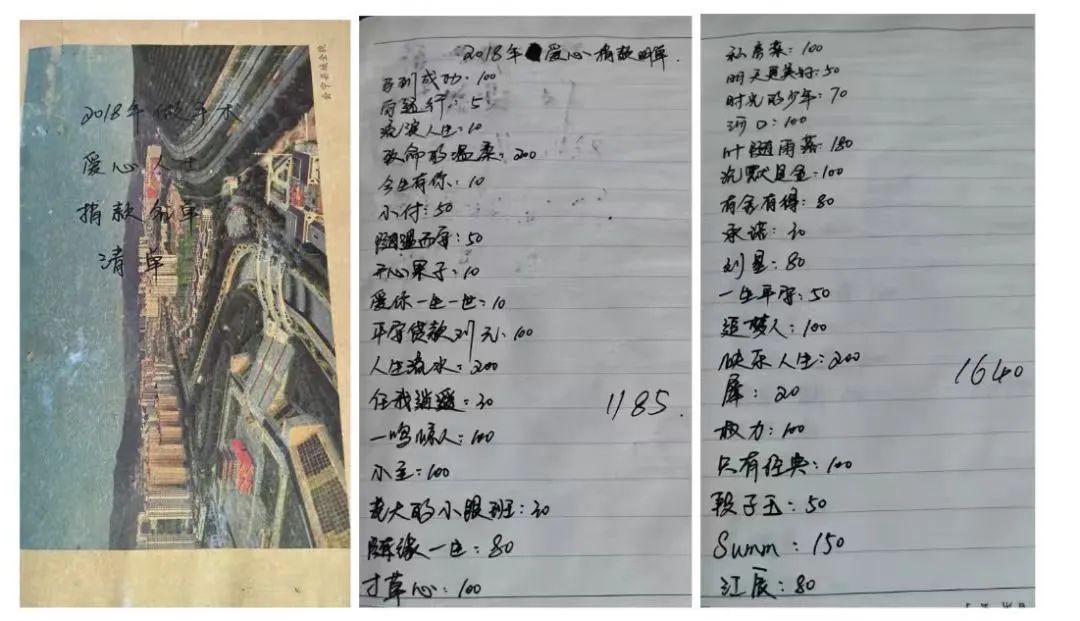 会宁县城全貌
2018年做手术
爱心人士
捐款名单
清单
2018年爱心捐款明单.
马到成功:100
向远行:5
疯演人生:10
致命的温柔:200
今生有你:10
小付:50
随遇而安:50
开心果子:10
爱你一生一世:10
平安贷款刘元:100
人生流水:200
任我逍遥:30
1185.
一鸣惊人:100
小主:100
老大的小跟班:30
随缘一生:80
寸草心:100
私房菜:100
明天更美好:50
时光的少年:70
河口:100
叶随雨落:180
沉默是金:100
有舍有得:80
承诺:30
刘星:80
一生平安:50
追梦人:100
快乐人生:200
1640
犀:20
权力:100
只有经典:100
段子王:50
Summ:150
江辰:80